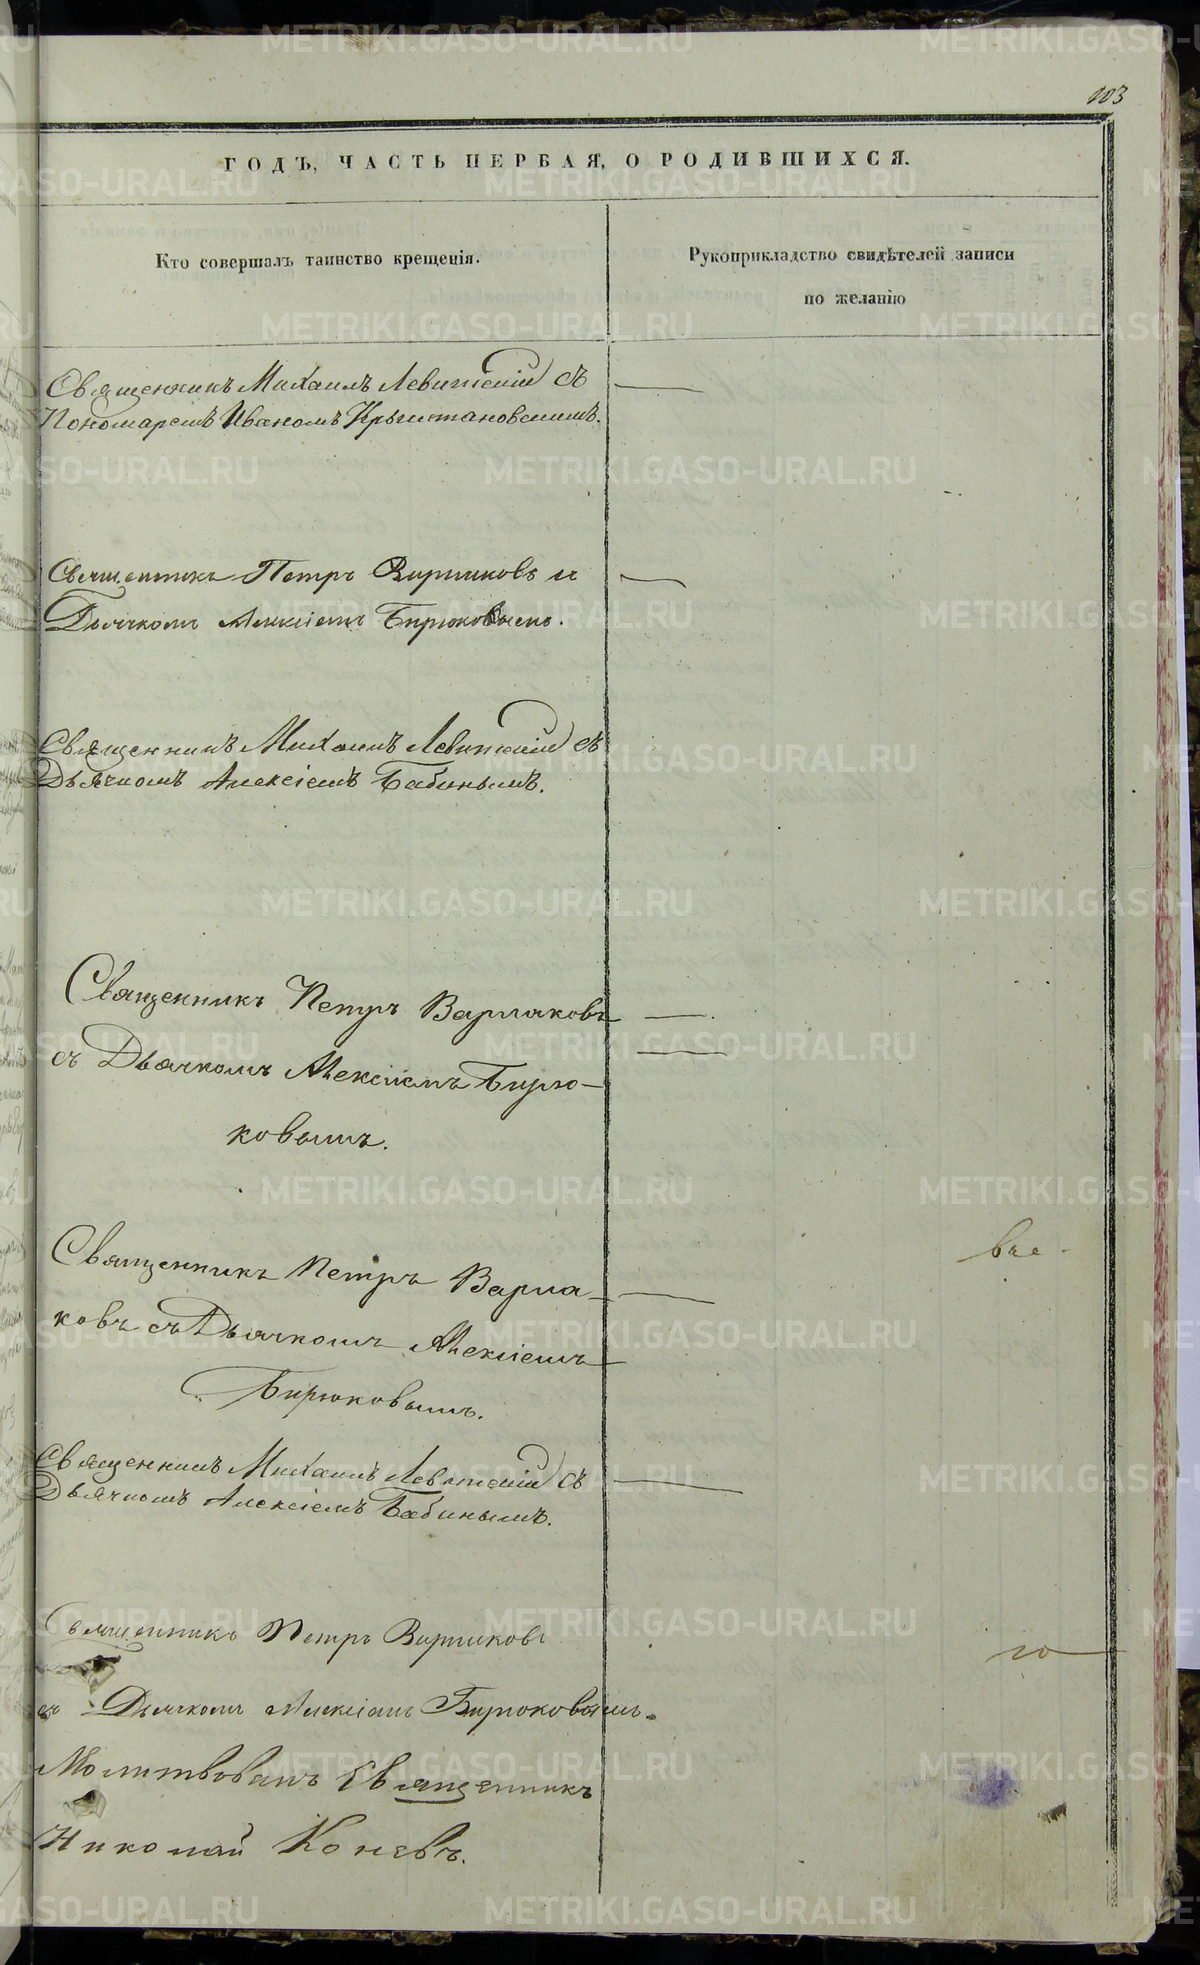 103
ГОДЪ, ЧАСТЬ ПЕРВАЯ, О РОДИВШИХСЯ.
Кто совершалъ таинство крещенія.
Рукоприкладство свидѣтелей записи
по желанію
Священникъ Михаилъ Левитскій съ
Пономаремъ Иваномъ Крыштановскимъ.
Священникъ Петръ Варлаковъ и
Дьячкомъ Алексіемъ Бирюковымъ.
Священникъ Михаилъ Левитскій съ
Дьячкомъ Алексіемъ Бабинымъ.
Священникъ Петръ Варлаковъ
съ Дьячкомъ Алексіемъ Бирю-
ковымъ.
Священникъ Петръ Варла-
ковъ съ Дьячкомъ Алексіемъ
Бирюковымъ.
Священникъ Михаилъ Левитскій съ
Дьячкомъ Алексіемъ Бабинымъ.
Священникъ Петръ Варлаковъ
съ Дьячкомъ Алексіемъ Бирюковымъ.
Молитвовалъ Священникъ
Николай Коневъ.
METRIKI.GASO-URAL.RU